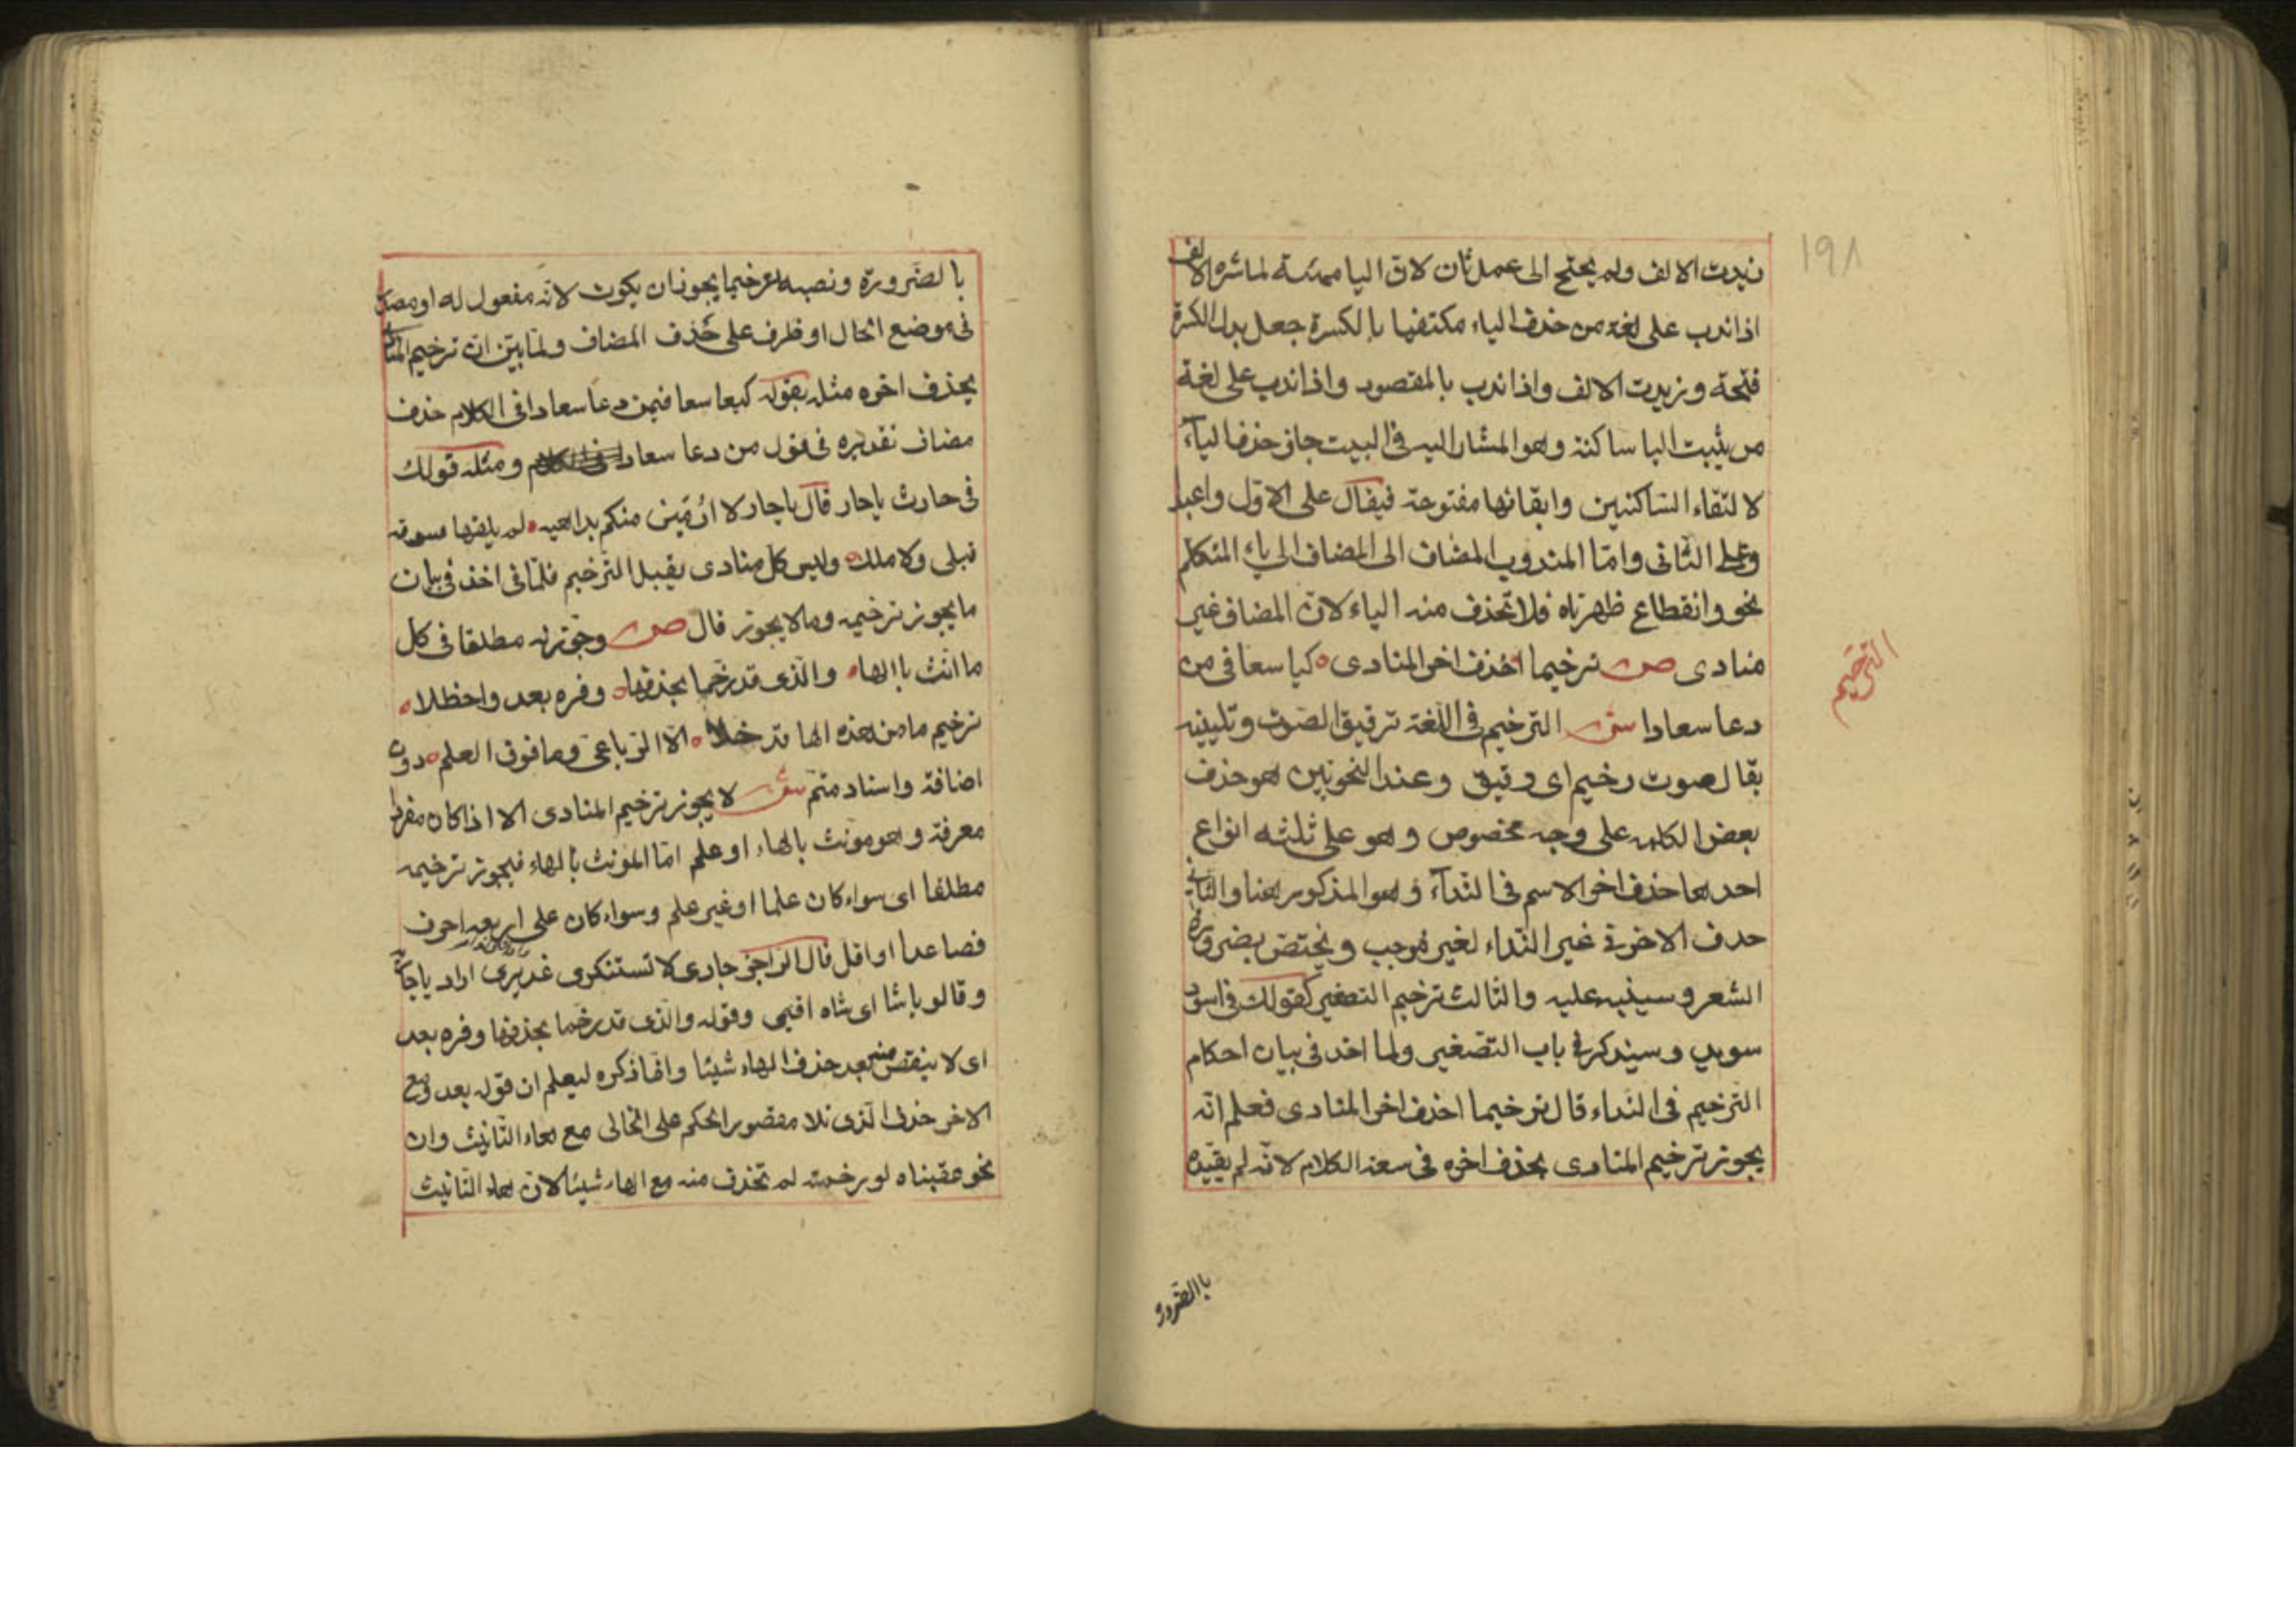 ١٩٨
زيدت الالف ولم يحتج الى عمل ثان لان اليا مهيئة لمباشرة الالف
اذا ندب على لغة من حذف الياء مكتفيا بالكسرة جعل بدل الكسرة
فتحة وزيدت الالف واذا ندب بالمقصور واذا ندب على لغة
من يثبت اليا ساكنة وهو المشار اليه في البيت جاز حذف الياء
لالتقاء الساكنين وابقائها مفتوحة فيقال على الاول واعبدا
وعلى الثاني وامّا المندوب المضاف الى المضاف الى ياء المتكلم
نحو وانقطاع ظهرياه فلا تحذف منه الياء لان المضاف غير
منادى ص ترخيما احذف اخر المنادى كيا سعا في من
الترخيم
دعا سعادا ش الترخيم في اللغة ترقيق الصوت وتليينه
يقال صوت رخيم اى رقيق وعند النحويين هو حذف
بعض الكلمه على وجه مخصوص وهو على ثلثه انواع
احدها حذف اخر الاسم في الندآء وهو المذكور هنا والثاني
حذف الاخر في غير النداء لغير موجب ويختص بضرورة
الشعر وسينبه عليه والثالث ترخيم التصغير كقولك في اسود
سويد وسيذكر في باب التصغير ولما اخذ في بيان احكام
الترخيم في النداء قال ترخيما احذف اخر المنادى فعلم انه
يجوز ترخيم المنادى بحذف اخره في سعة الكلام لانه لم يقيده
باالضرورة
بالضرورة ونصبه ترخيما يجوز ان يكون لانه مفعول له او مصدر
في موضع الحال او ظرف على حذف المضاف ولما بين ان ترخيم المنادى
بحذف اخره مثله بقوله كيعا سعا فيمن دعا سعادا في الكلام حذف
مضاف تقديره في قول من دعا سعاد ومثله قولك
في حارث ياحار قال ياحار لا ارمين منكم بداهيه لم يلقها سوقه
قبلى ولا ملك وليس كل منادى يقبل الترخيم فلما في اخذ في بيان
ما يجوز ترخيمه وما لا يجوز قال ص وجوزنه مطلقا في كل
ما انث باالها والذى قد رخما بحذفها وفره بعد واحظلا
ترخيم ما من هذه الها قد خلا الا الرباعي وما فوق العلم دون
اضافة واسناد متم ش لا يجوز ترخيم المنادى الا اذا كان مفردا
معرفة وهو مونث بالهاء او علم امّا المؤنث بالهاء فيجوز ترخيمه
مطلقا اى سواء كان علما او غير علم وسواء كان على اربعه احرف
فصاعدا او اقل قال الراجز جارى لا تستنكرى غديرى اراد ياجارية
وقالو ياشا اى شاه اقيمى وقوله والذى قد رخما بحذفها وفره بعد
اى لا ينقص منه بعد حذف الهاء شيئا وانما ذكره ليعلم ان قوله بعد ومع
الاخر احذف الذى تلا مقصور الحكم على الخالى مع هاء التانيث وان
نحو عقبناه لو رخمته لم تحذف منه مع الهاء شيئا لان هاء التانيث